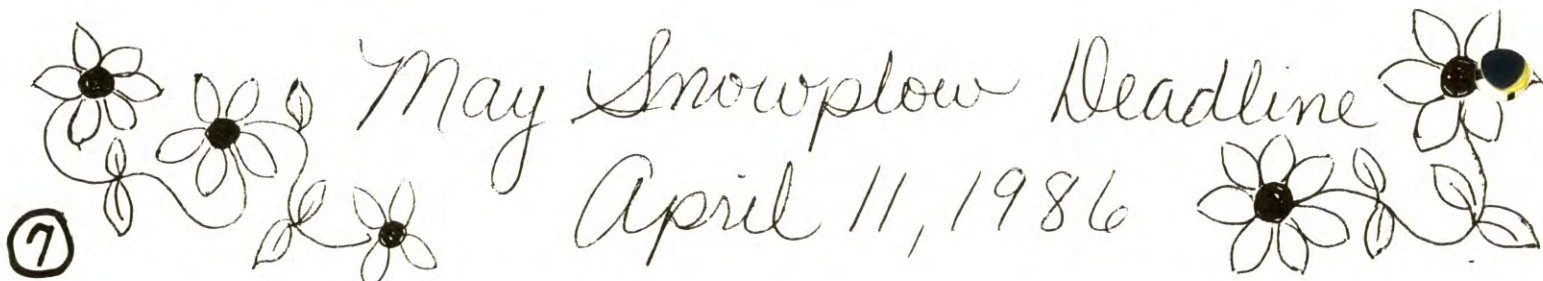 May Snowplow Deadline
April 11, 1986
7